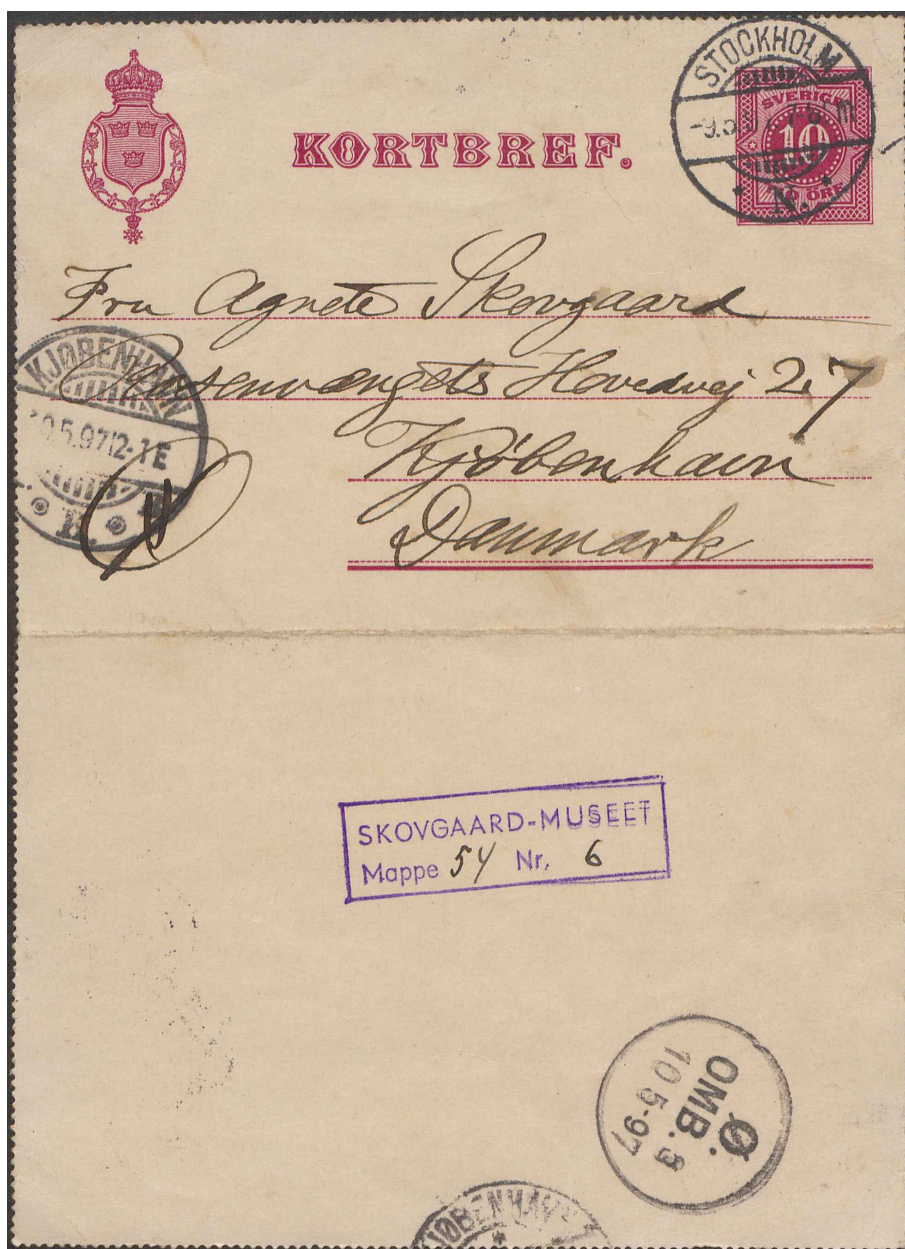 KORTBREF.
STOCKHOLM
N.
SVERIGE
10
ÖRE
Fru Agnete Skovgaard
Rosenvængets Hovedvej 27
Kjöbenhavn
Danmark
KJØBENHAVN
10.5.97 12-1 E
K.
SKOVGAARD-MUSEET
Mappe 54 Nr. 6
Ø.
OMB. 3
10 5-97
KJØBENHAVN